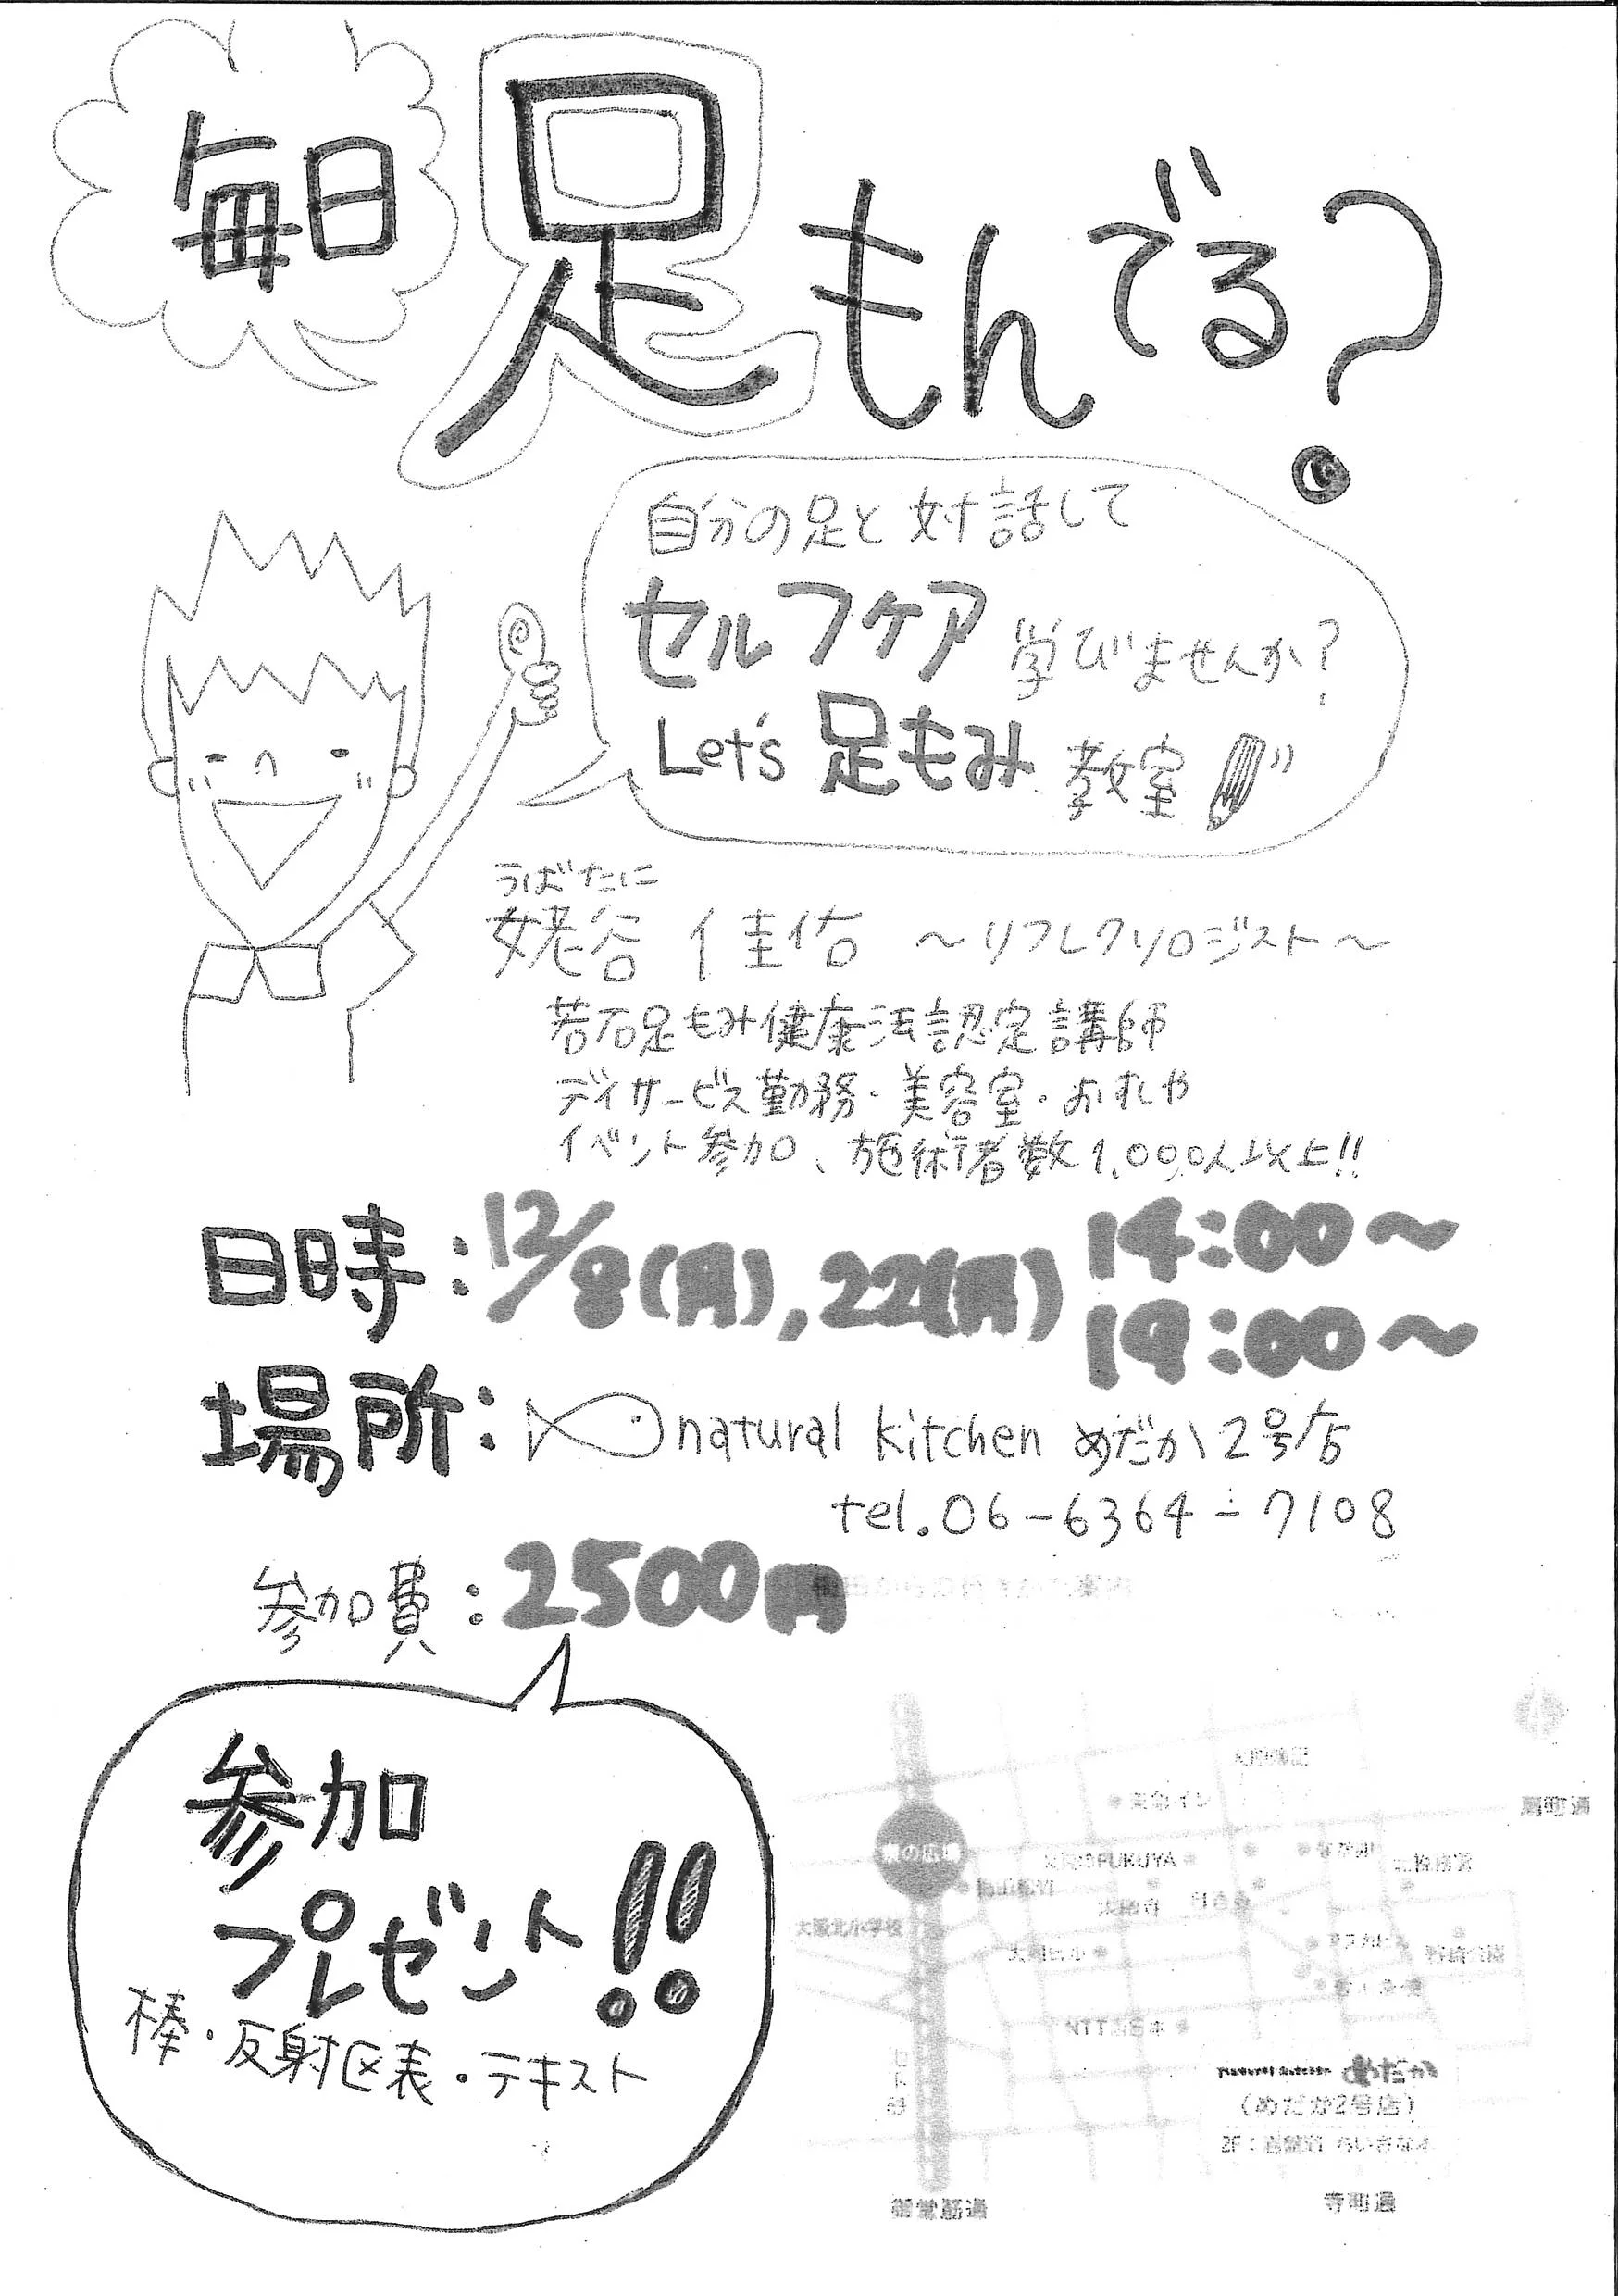 毎日足もんでる?
自分の足と対話して
セルフケア学びませんか?
Let's 足もみ教室
うばたに
姥谷 佳佑 〜リフレクソロジスト〜
若石足もみ健康法認定講師
デイサービス勤務・美容室・おすしや
イベント参加、施術者数1,000人以上!!
日時:12/8(月),22(月) 14:00〜
19:00〜
場所:natural kitchen めだか2号店
tel.06-6364-7108
参加費:2500円
参加
プレゼント!!
棒・反射区表・テキスト
東の広場
大阪北小学校
めだか
(めだか2号店)
御堂筋通
寺町通